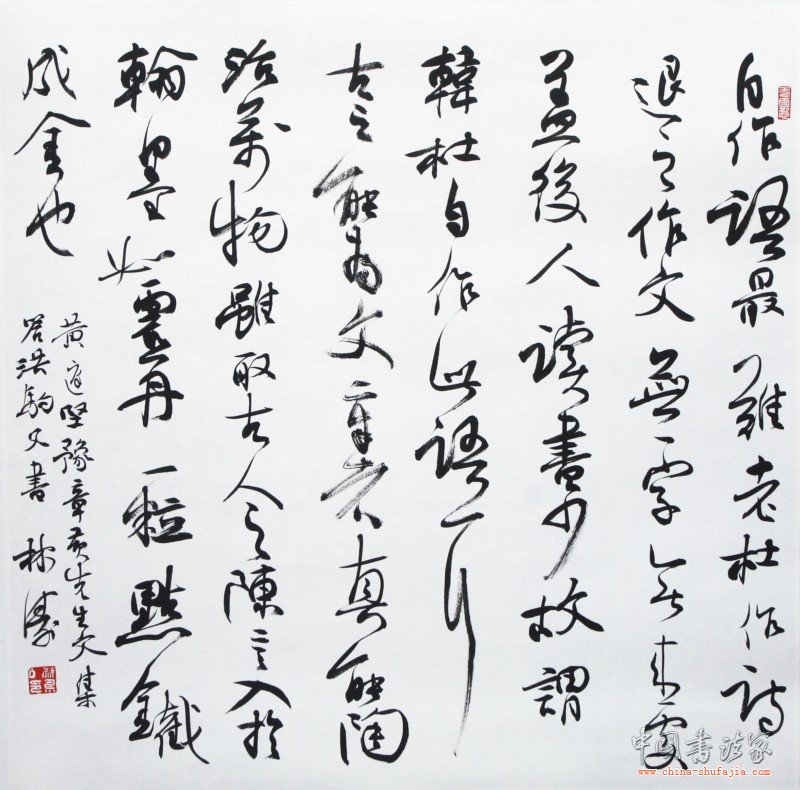 自作語最難老杜作詩
退之作文無一字無來處
蓋後人讀書少故謂
韓杜自作此語耳
古之能為文章者真能陶
冶萬物雖取古人之陳言入於
翰墨如靈丹一粒點鐵
成金也
黃庭堅豫章黃先生文集
答洪駒父書
中國書法家
www.china-shufajia.com